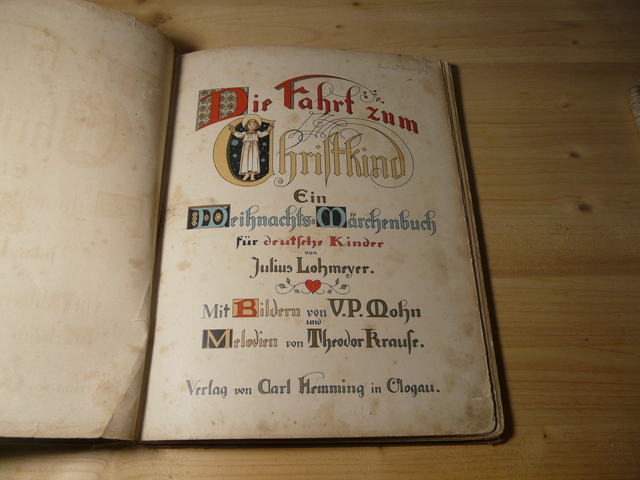 Die Fahrt zum
Christkind
Ein
Weihnachts-Märchenbuch
für deutsche Kinder
von
Julius Lohmeyer.
Mit Bildern von V.P. Mohn
und
Melodien von Theodor Krause.
Verlag von Carl Flemming in Glogau.